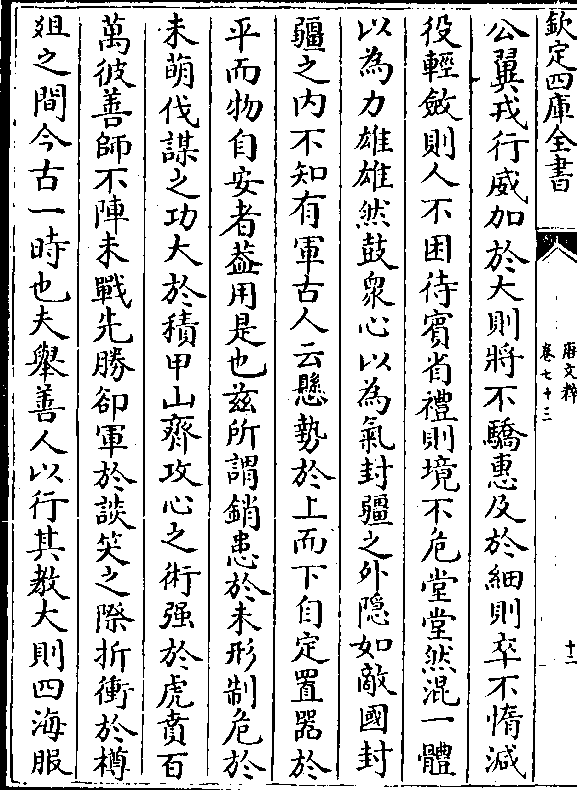 欽定四庫全書
唐文粹
卷七十三
十二
公翼戎行威加於大則將不驕惠及於細則卒不惰減
役輕斂則人不困待賓省禮則境不危堂堂然混一體
以為力雄雄然鼓衆心以為氣封疆之外隠如敵國封
疆之内不知有軍古人云懸勢於上而下自定置器於
平而物自安者葢用是也兹所謂銷患於未形制危於
未萌伐謀之功大於積甲山齊攻心之術强於虎賁百
萬彼善師不陣未戰先勝卻軍於談笑之際折衝於樽
俎之間今古一時也夫舉善人以行其教大則四海服